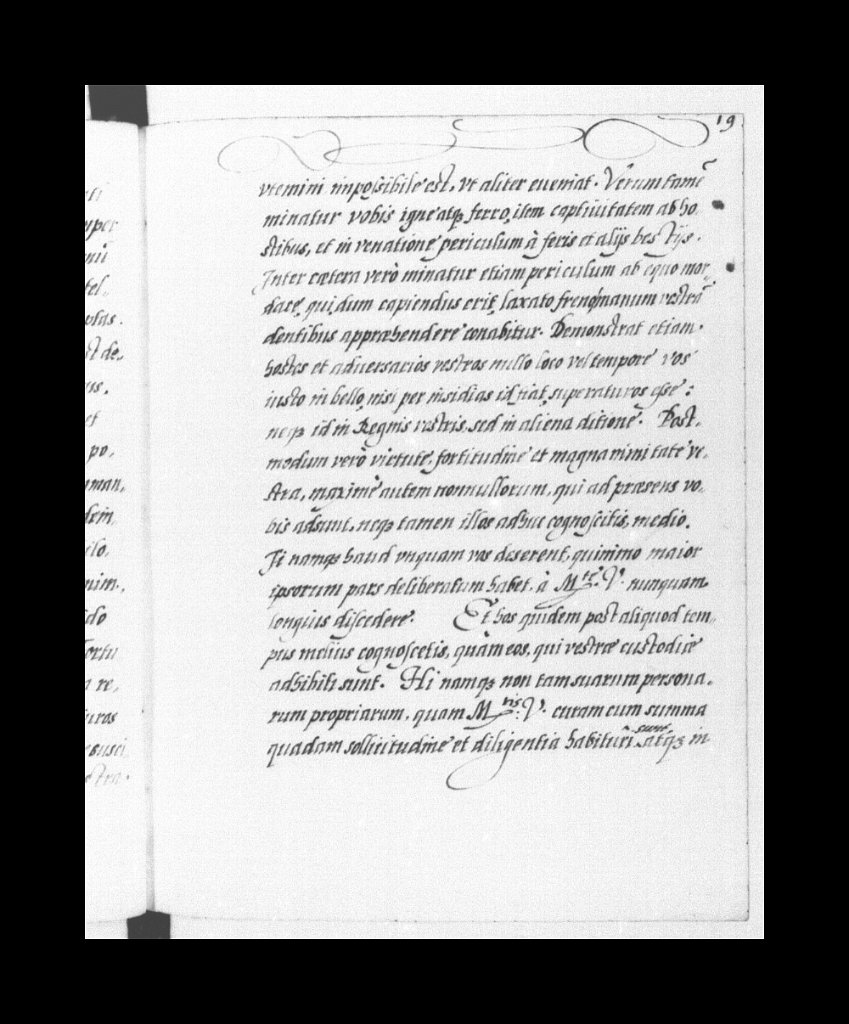 19
vtemini impossibile est, vt aliter eueniat. Verumtamē
minatur vobis igne atq3 ferro, item captiuitatem ab ho
stibus, et in venatione periculum à feris et alijs bestijs.
Inter cætera verò minatur etiam periculum ab equo mor-
dace, qui, dum capiendus erit, laxato freno, manum vestrā
dentibus appræhendere conabitur. Demonstrat etiam,
hostes et aduersarios vestros nullo loco vel tempore vos
iusto in bello, nisi per insidias id fiat, superaturos esse:
neq3 id in Regnis vestris, sed in aliena ditione. Post-
modum verò virtute, fortitudine et magnanimitate ve-
stra, maximè autem nonnullorum, qui ad præsens vo-
bis adsunt, neq3 tamen illos adhuc cognoscitis, medio.
Ii namq3 haud vnquam vos deserent, quinimo maior
ipsorum pars deliberatum habet, à M.te V. nunquam
longius discedere. Et hos quidem post aliquod tem-
pus melius cognoscetis, quàm eos, qui vestræ custodiæ
adhibiti sunt. Hi namq3 non tam suarum persona-
rum propriarum, quam M.tis V. curam cum summa
quadam sollicitudine et diligentia habituri sunt atq3 in
ti
mper
nū
tel-
ptas.
st de-
us,
et
po-
man,
dem
ilo,
nim-
do
fortu
a re-
turos
esusci
estra.